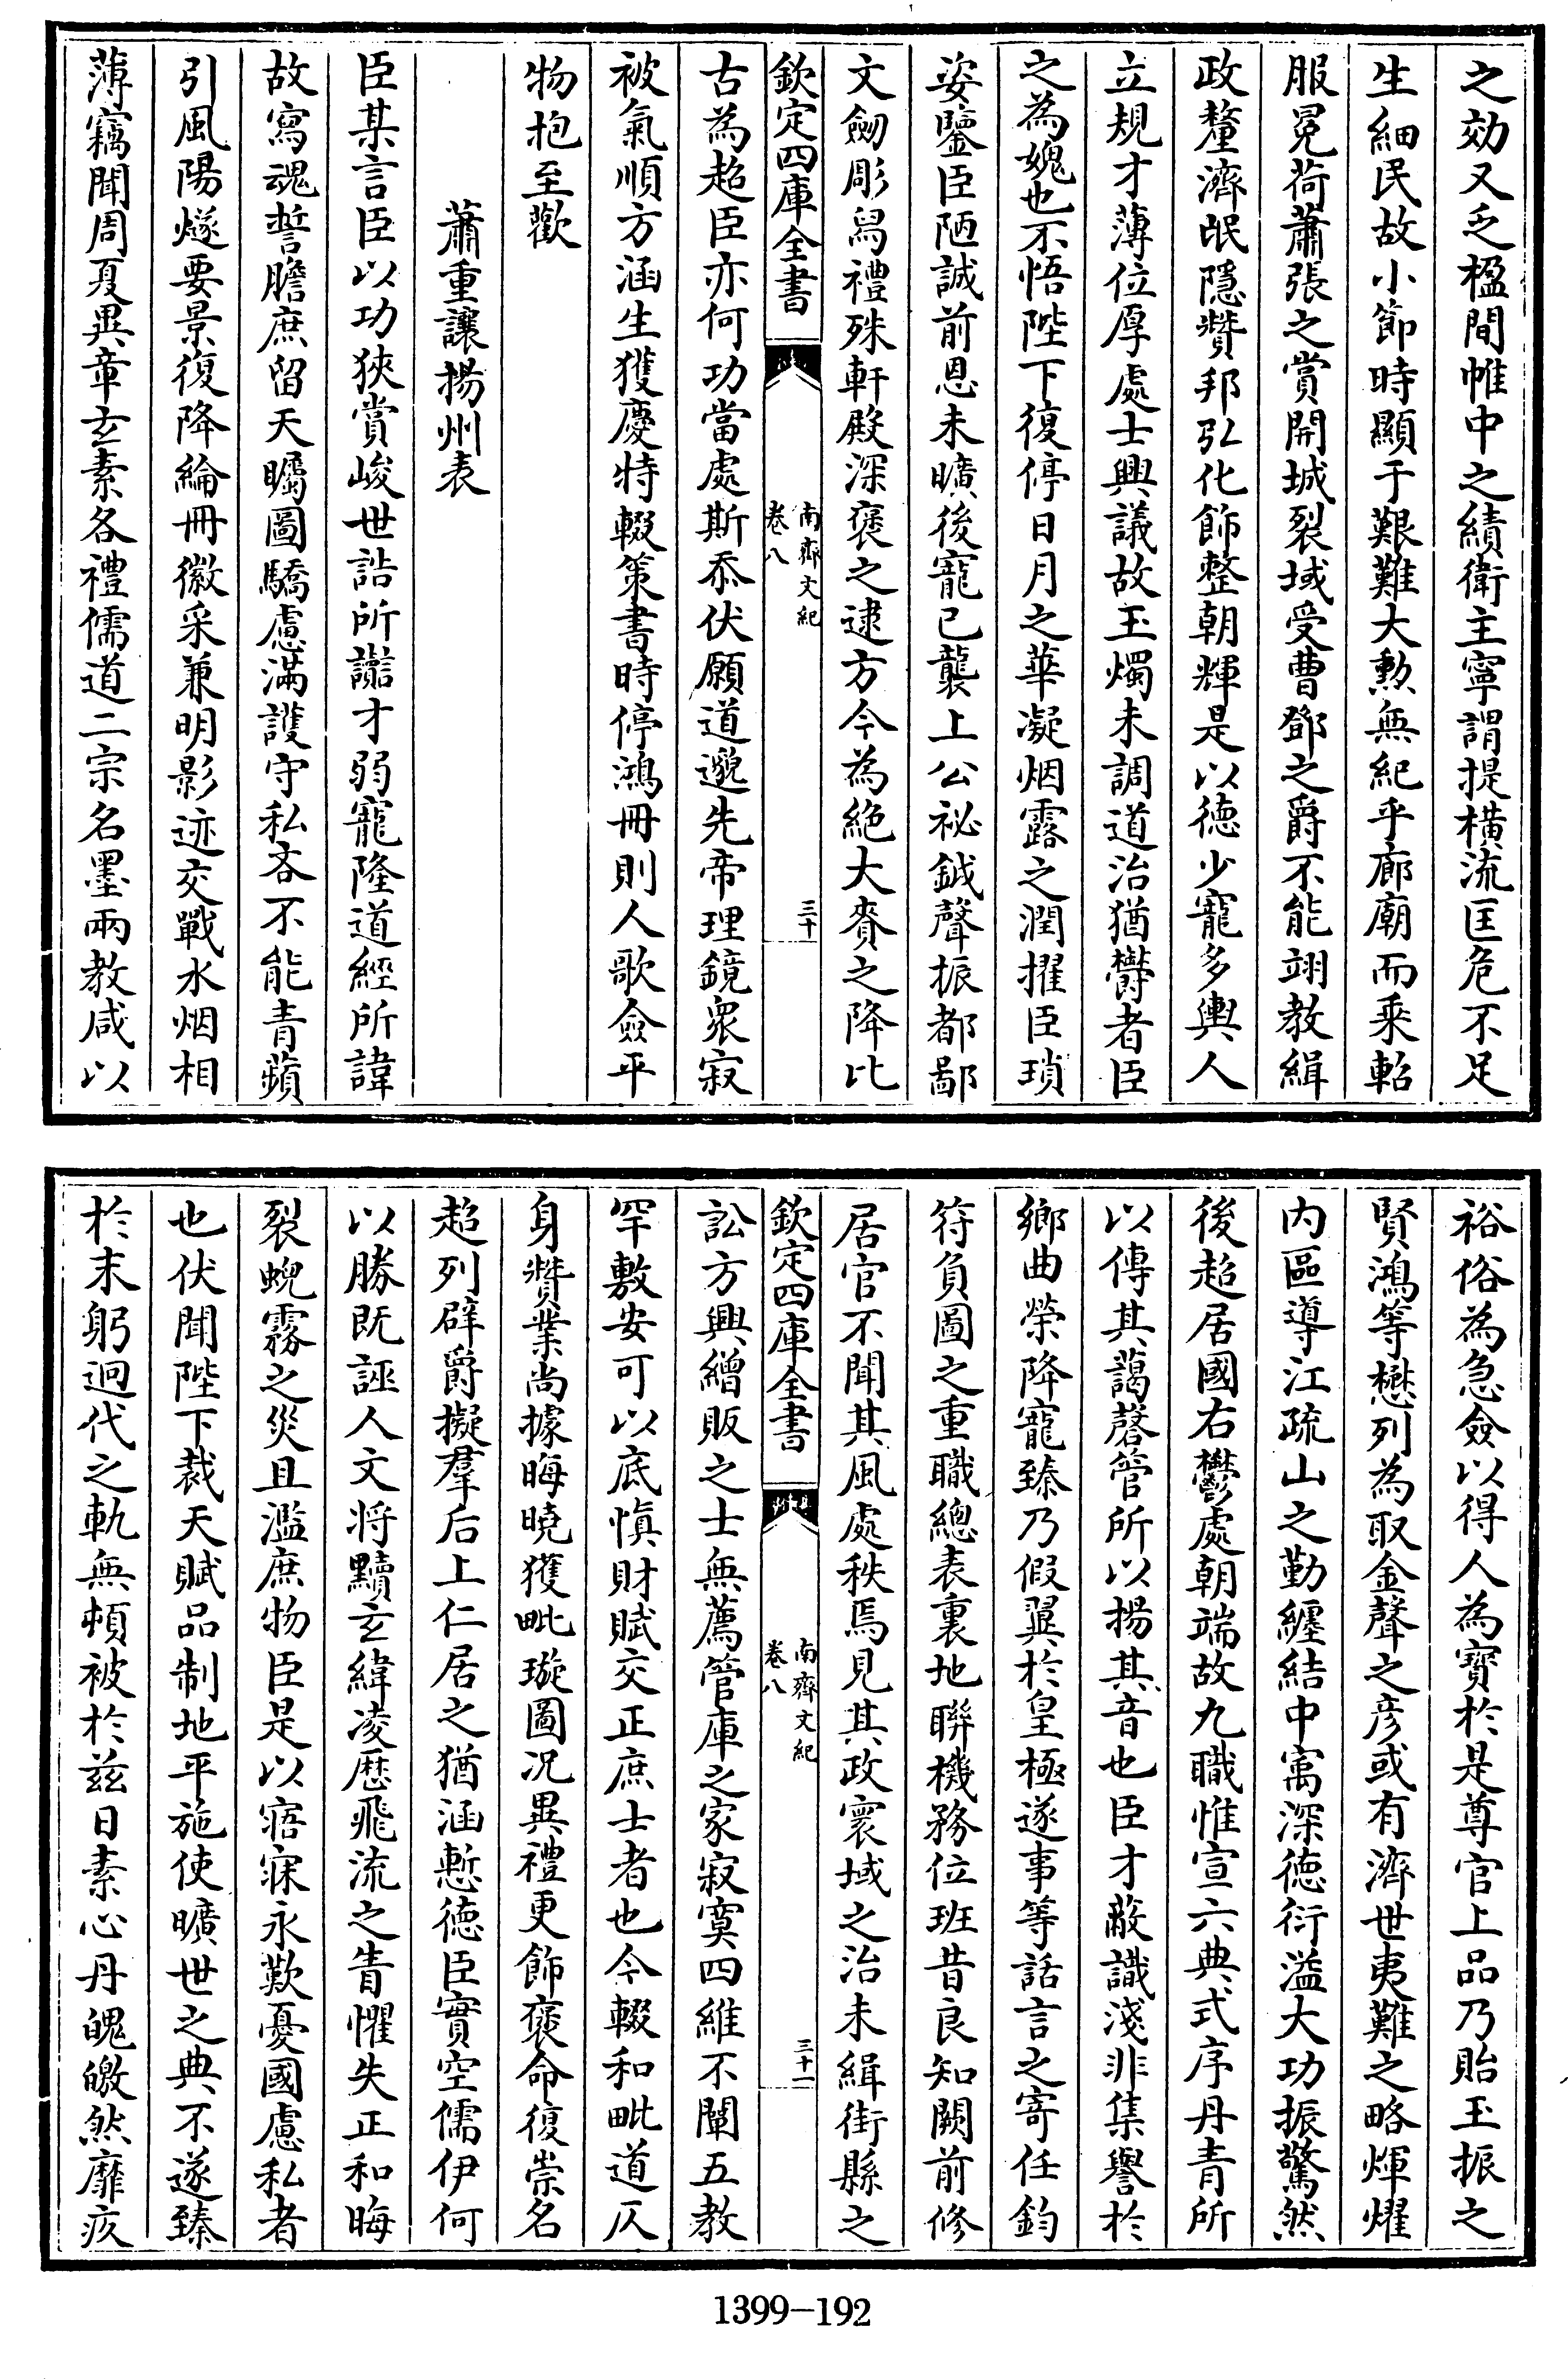 之効又乏楹間帷中之績衛主寧謂提横流匡危不足
生細民故小節時顯于艱難大勲無紀乎廊廟而乘軺
服冕荷蕭張之賞開城裂域受曹鄧之爵不能翊教緝
政釐濟㟭隱賛邦弘化飾整朝輝是以徳少寵多輿人
立規才薄位厚處士興議故玉燭未調道治猶欝者臣
之為媿也不悟陛下復停日月之華凝烟露之潤擢臣瑣
姿鑒臣陋誠前恩未曠後寵已襲上公祕鉞聲振都鄙
文劒彫舄禮殊軒殿深褒之逮方今為絶大賚之降比
欽定四庫全書
南齊文紀
卷八
三十
古為超臣亦何功當處斯忝伏願道邈先帝理鏡衆寂
被氣順方涵生獲慶特輟策書時停鴻冊則人歌僉平
物抱至歡
蕭重讓揚州表
臣某言臣以功狹賞峻世誥所譏才弱寵隆道經所諱
故寫魂誓膽庶留天矚圖驕慮滿護守私吝不能青蘋
引風陽燧要景復降綸冊徽采兼明影迹交戰水烟相
薄竊聞周夏異章玄素各禮儒道二宗名墨兩教咸以
裕俗為急僉以得人為寶於是尊官上品乃貽玉振之
賢鴻等懋列為取金聲之彦或有濟世夷難之略煇燿
内區導江疏山之勤纒結中㝢深徳衍溢大功振驚然
後超居國右鬱處朝端故九職惟宣六典式序丹青所
以傳其藹磬管所以揚其音也臣才蔽識淺非集譽於
鄉曲榮降寵臻乃假翼於皇極遂事等話言之寄任鈞
符負圖之重職總表裏地聯機務位班昔良知闕前修
居官不聞其風處秩焉見其政寰域之治未緝街縣之
欽定四庫全書
南齊文紀
卷八
三十一
訟方興繒販之士無薦管庫之家寂寞四維不闡五教
罕敷安可以底慎財賦交正庶士者也今輟和毗道仄
身賛業尚據晦曉獲毗璇圖况異禮更飾褒命復崇名
超列辟爵擬羣后上仁居之猶涵慙徳臣實空儒伊何
以勝既誣人文将黷玄緯凌厯飛流之眚懼失正和晦
裂蜺霧之災且濫庶物臣是以寤寐永歎憂國慮私者
也伏聞陛下裁天賦品制地平施使曠世之典不遂臻
於末躬迥代之軌無頓被於兹日素心丹魄皦然靡疚
1399–192